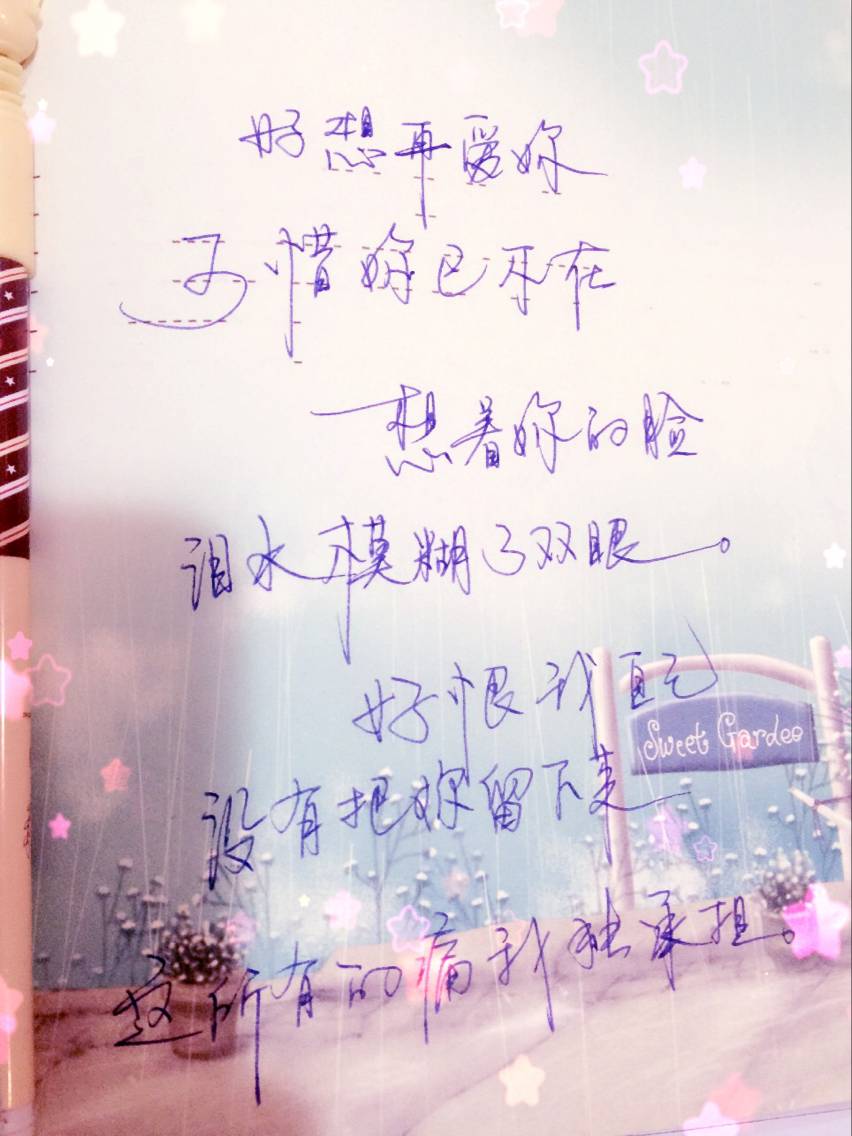 好想再爱妳
可惜妳已不在
想着妳的脸
泪水模糊了双眼。
好恨我自己
Sweet Garden
没有把妳留下来
这所有的痛我独承担。